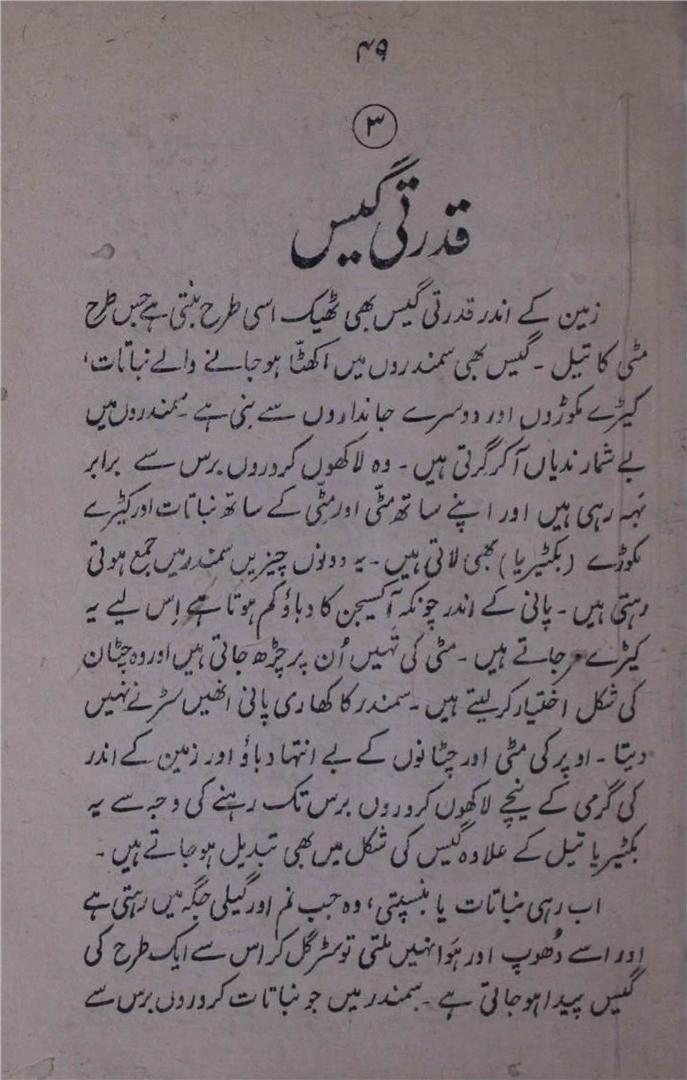 ۴۹
۳
قدرتی گیس
زمین کے اندر قدرتی گیس بھی ٹھیک اسی طرح بنتی ہے جس طرح
مٹی کا تیل ۔ گیس بھی سمندروں میں اکھٹّا ہو جانے والے نباتات،
کیڑے مکوڑوں اور دوسرے جانداروں سے بنی ہے ۔ سمندروں میں
بے شمار ندیاں آ کر گرتی ہیں ۔ وہ لاکھوں کروروں برس سے برابر
بَہہ رہی ہیں اور اپنے ساتھ مٹّی اور مٹّی کے ساتھ نباتات اور کیڑے
مکوڑے (بکٹیریا) بھی لاتی ہیں ۔ یہ دونوں چیزیں سمندر میں جمع ہوتی
رہتی ہیں ۔ پانی کے اندر چونکہ آکسیجن کا دباؤ کم ہوتا ہے اِس لیے یہ
کیڑے مر جاتے ہیں ۔ مٹی کی تہیں اُن پر چڑھ جاتی ہیں اور وہ چٹان
کی شکل اختیار کر لیتے ہیں ۔ سمندر کا کھاری پانی انھیں سڑنے نہیں
دیتا ۔ اوپر کی مٹی اور چٹانوں کے بے انتہا دباؤ اور زمین کے اندر
کی گرمی کے نیچے لاکھوں کروروں برس تک رہنے کی وجہ سے یہ
بکٹیریا تیل کے علاوہ گیس کی شکل میں بھی تبدیل ہو جاتے ہیں ۔
اب رہی نباتات یا بنسپتی، وہ جب نم اور گیلی جگہ میں رہتی ہے
اور اسے دُھوپ اور ہَوا نہیں ملتی تو سڑ گل کر اس سے ایک طرح کی
گیس پیدا ہو جاتی ہے ۔ سمندر میں جو نباتات کروروں برس سے